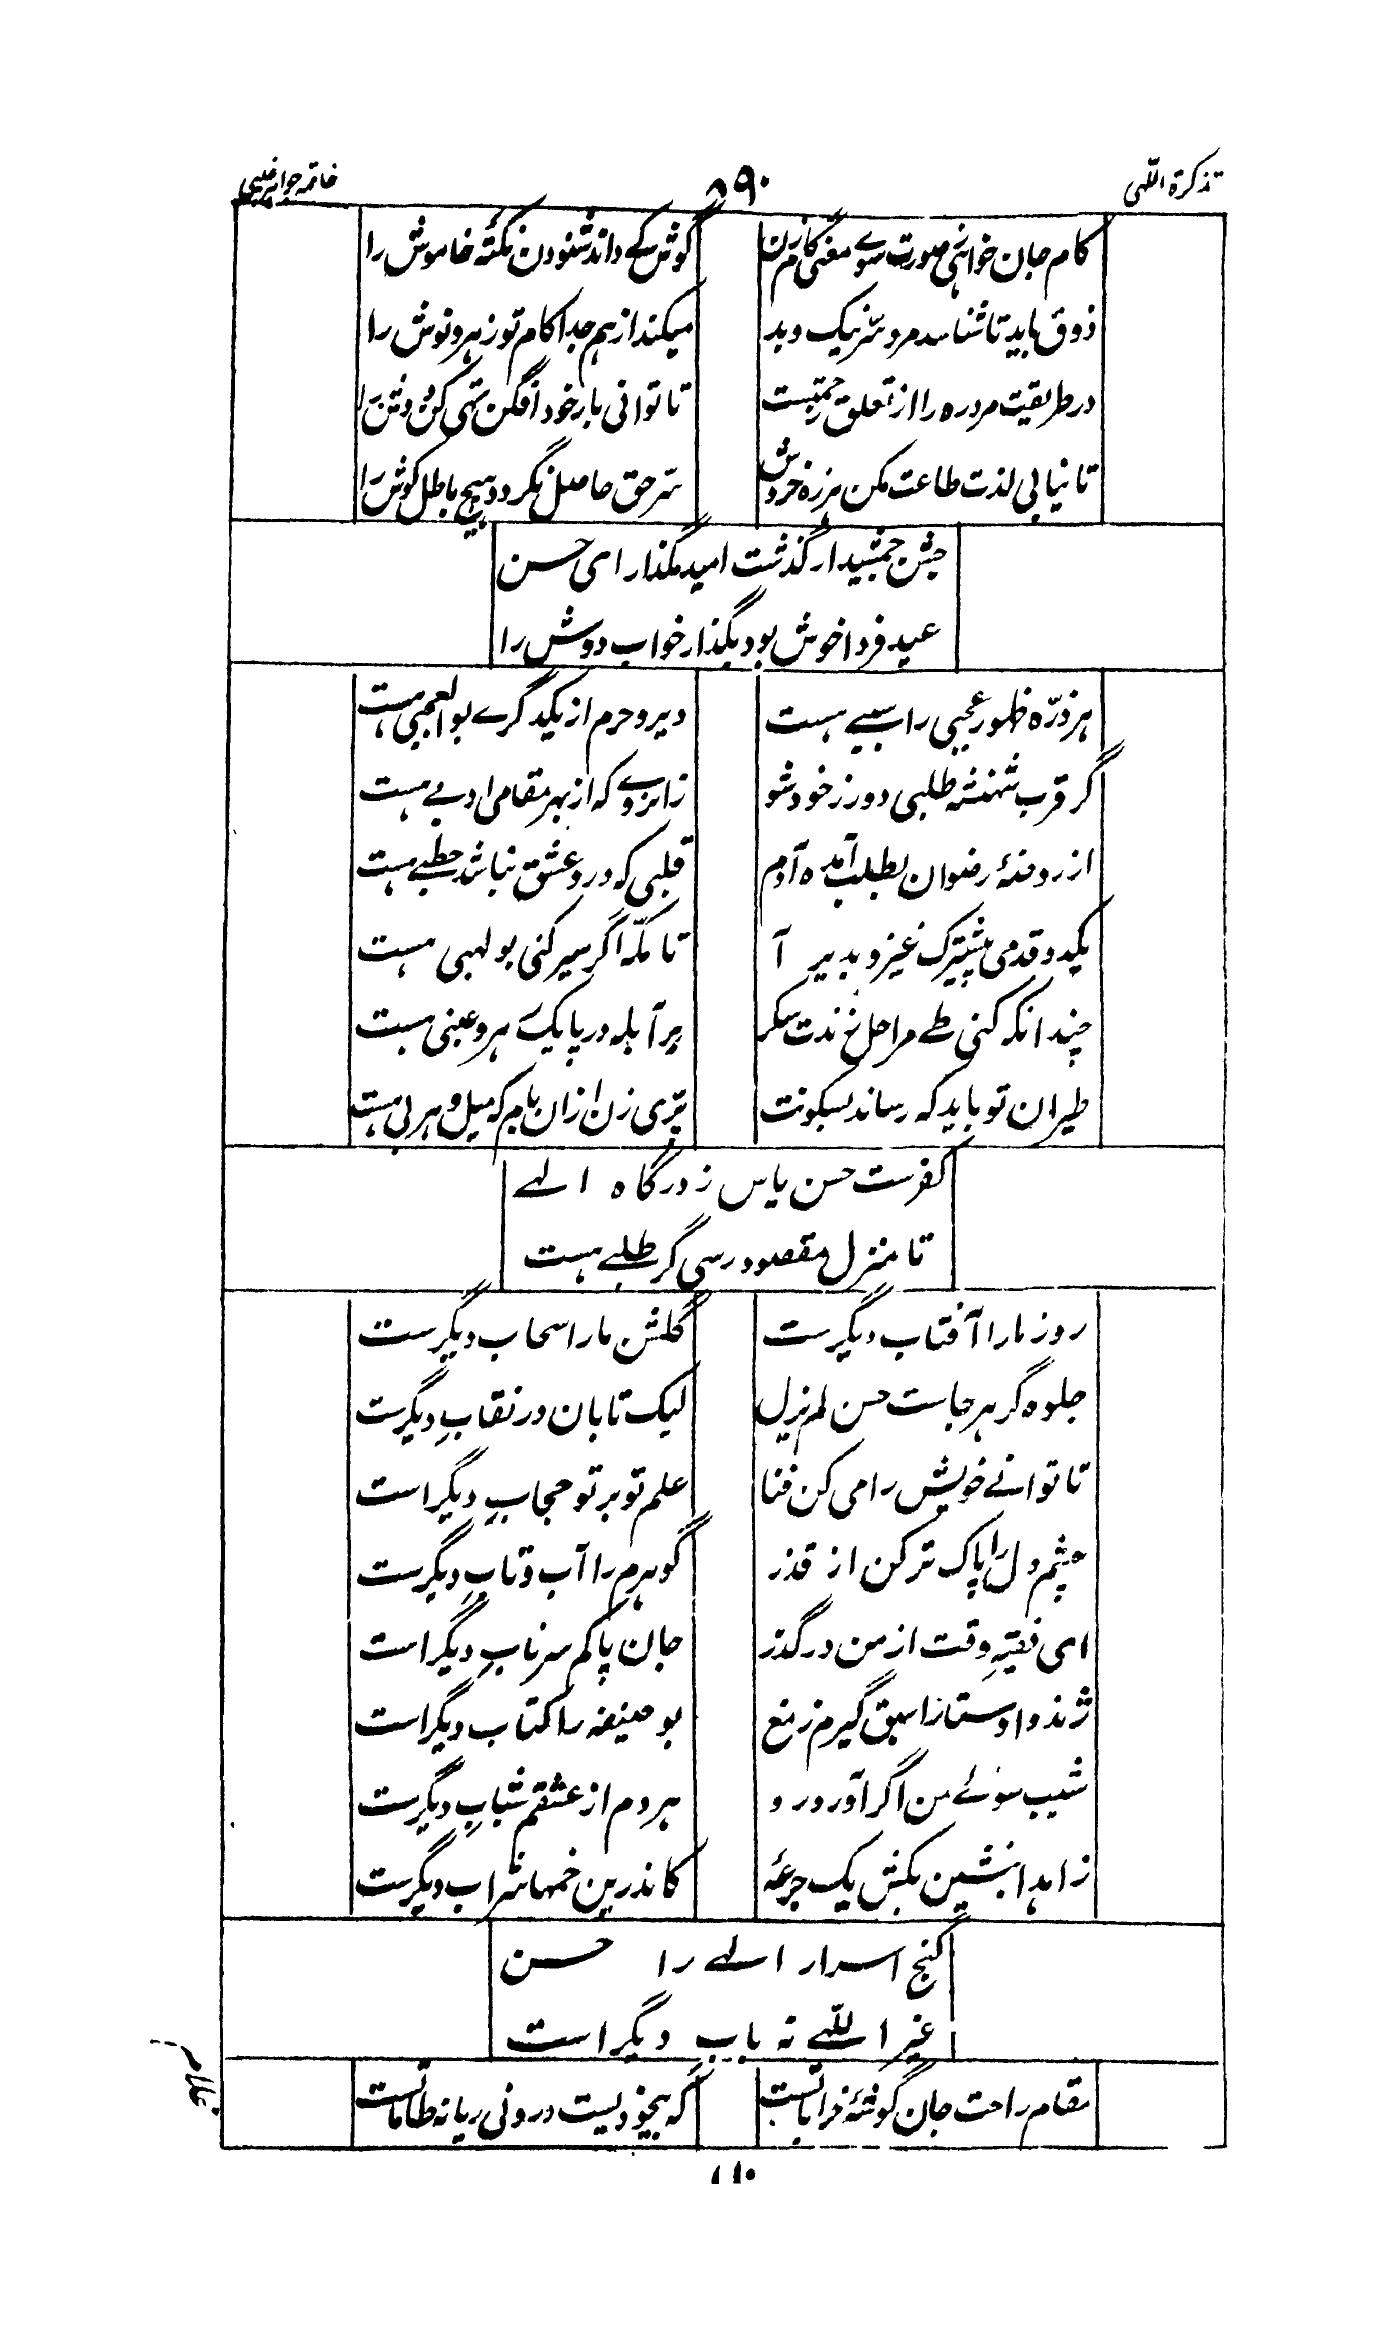 تذکرة اللّٰهی ۵۹۰ خاتمه جواهر غیبی
کام جان خواهی ز صورت سوے معنی گام زن گوش کے داند شنودن نکتۂ خاموش را
ذوق باید تا شناسد مرد سرّ نیک و بد میکند از هم جدا کام تو زهر و نوش را
در طریقت مرد ره را از تعلق زحمتیست تا توانی بار خود افگن تهی کن دوش را
تا نیابی لذت طاعت مکن هرزه خروش سرّ حق حاصل نگردد هیچ باطل کوش را
جشن جمشید ار گذشت امید مگذار ای حسن
عید فردا خوش بود بگذار خواب دوش را
هر ذرّه ظهور عجبی را سببے هست دیر و حرم از یکدگرے بوالعجبی هست
گر قرب شهنشه طلبی دور ز خود شو زانروے که از بهر مقامی ادبے هست
از روضۂ رضوان بطلب آمده آدم قلبی که درو عشق نباشد حطبے هست
یکدو قدمی پیشترک غیر و بدیر آ تا مکّه اگر سیر کنی بولهبی هست
چندانکه کنی طے مراحل ندت سکر پر آبله در پا یکے هر و عنبی هست
طیران تو باید که رساند بسکونت پرّی زن ازان بام که میل و هربی هست
کفرست حسن یاس ز درگاه الٰهے
تا منزل مقصود رسی گر طلبے هست
روز ما را آفتاب دیگرست گلشن ما را سحاب دیگرست
جلوه گر هر جاست حسن لم یزل لیک تابان در نقابِ دیگرست
تا توانے خویش را می کن فنا علم تو بر تو حجابِ دیگر است
چشم دل را پاک تر کن از قذر گوهرم را آب و تابِ دیگرست
ای فقیهِ وقت از من در گذر جان پاکم سر نابِ دیگر است
ژند و اوستا را سبق گیرم ز مغ بو حنیفه را کتاب دیگر است
شیب سوئے من اگر آورد رو هر دم از عشقم شبابِ دیگرست
زاهدا بنشین بکش یک جرعۂ کاندرین خمها شراب دیگرست
گنج اسرار الٰهے را حسن
غیر اللّٰهے نه بابِ دیگر است
مقام راحت جان گوشۂ خراباتست که بیخودیست درونی ریا نه طاماتست
۱۱۰